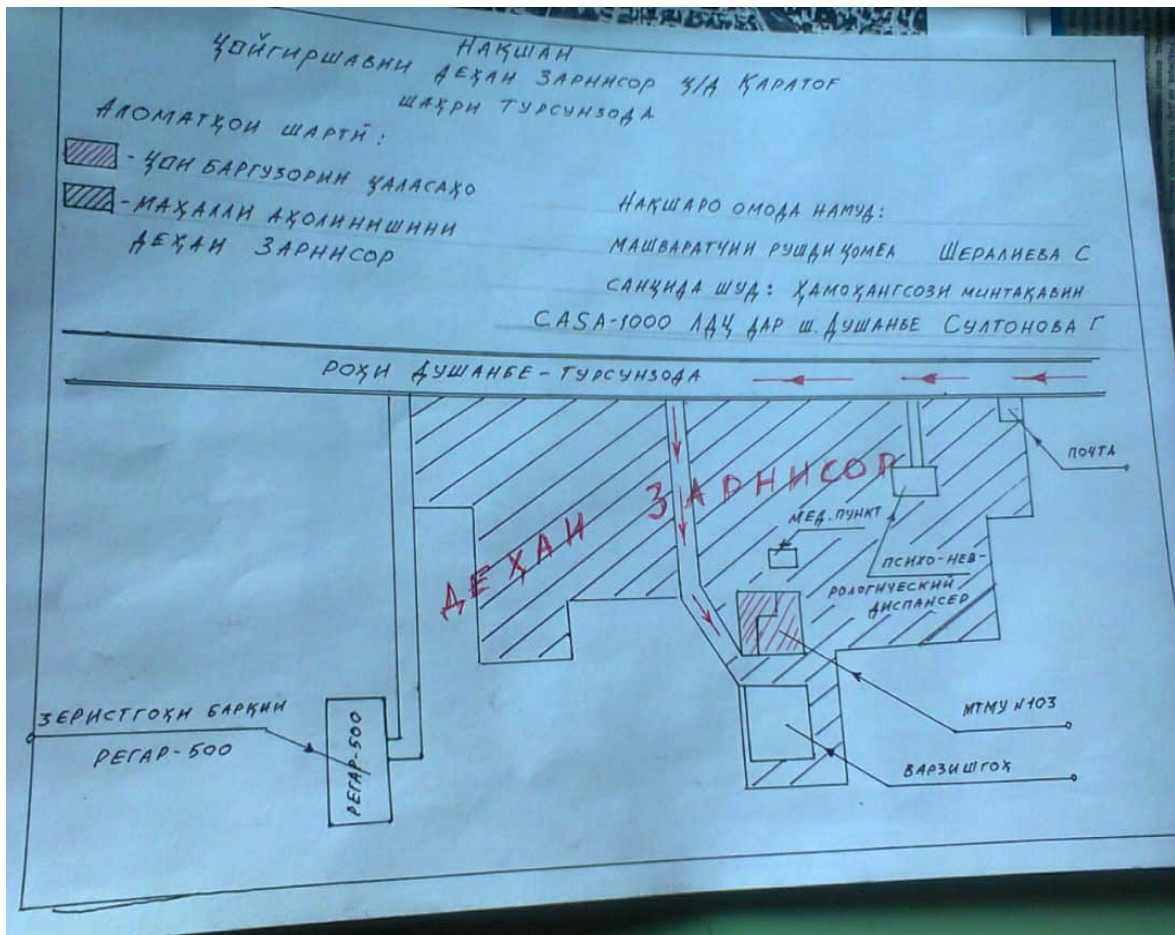 НАҚШАИ
ҶОЙГИРШАВИИ ДЕҲАИ ЗАРНИСОР Ҷ/Д ҚАРАТОҒ
ШАҲРИ ТУРСУНЗОДА
АЛОМАТҲОИ ШАРТӢ:
- ҶОИ БАРГУЗОРИИ ҶАЛАСАҲО
- МАҲАЛЛИ АҲОЛИНИШИНИ
ДЕҲАИ ЗАРНИСОР
НАҚШАРО ОМОДА НАМУД:
МАШВАРАТЧИИ РУШДИ ҶОМЕА ШЕРАЛИЕВА С
САНҶИДА ШУД: ҲАМОҲАНГСОЗИ МИНТАҚАВИИ
CASA-1000 ЛДҶ ДАР Ш. ДУШАНБЕ СУЛТОНОВА Г
РОҲИ ДУШАНБЕ-ТУРСУНЗОДА
ПОЧТА
ДЕҲАИ ЗАРНИСОР
МЕД. ПУНКТ
ПСИХО-НЕВ-
РОЛОГИЧЕСКИЙ
ДИСПАНСЕР
ЗЕРИСТГОҲИ БАРҚИИ
РЕГАР-500
РЕГАР-500
МТМУ №103
ВАРЗИШГОҲ